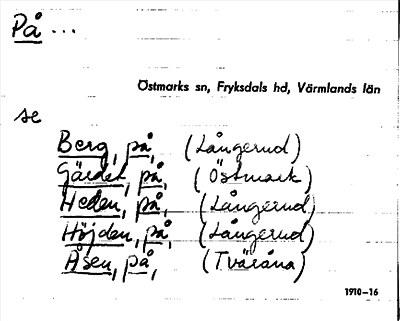 På ...
Östmarks sn, Fryksdals hd, Värmlands län
se
Berg, på, (Långerud)
Gärdet, på, (Östmark)
Heden, på, (Långerud)
Höjden, på, (Långerud)
Åsen, på, (Tväråna)
1910-16